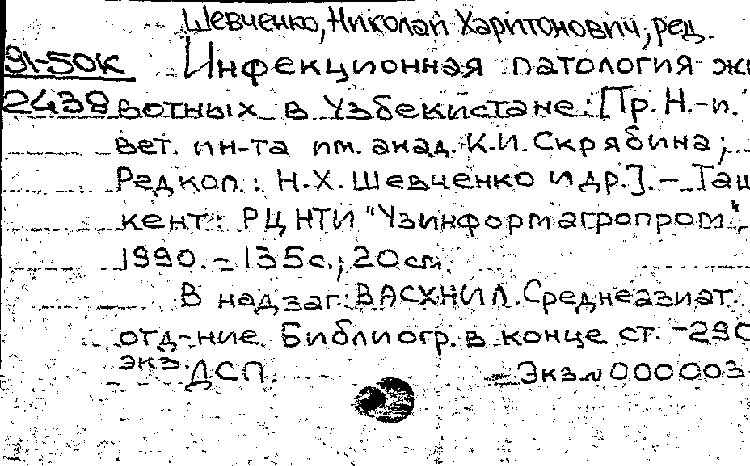 Шевченко, Николай Харитонович, ред.
91-50К Инфекционная патология жи
2438 вотных в Узбекистане: [Тр. Н.-и.
вет. ин-та им. акад. К.И. Скрябина;
Редкол.: Н.Х. Шевченко и др.]. - Таш
кент: РЦ НТИ "Узинформагропром",
1990. - 135с.; 20см.
В надзаг.: ВАСХНИЛ. Среднеазиат.
отд-ние. Библиогр. в конце ст. - 290
экз. ДСП. - Экз.N 000003